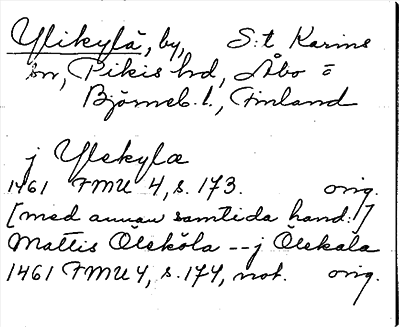 Ylikylä, by, S:t Karins
sn, Pikis hd, Åbo o
Björneb. l., Finland
j Ylekylæ
1461 FMU 4, s. 173. orig.
[med annan samtida hand:]
Mattis Ölsköla -- j Ölskala
1461 FMU 4, s. 174, not. orig.